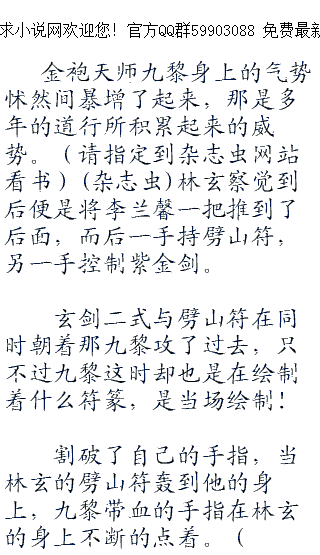 求小说网欢迎您！官方QQ群59903088 免费最新
金袍天师九黎身上的气势
怵然间暴增了起来，那是多
年的道行所积累起来的威
势。（请指定到杂志虫网站
看书）(杂志虫)林玄察觉到
后便是将李兰馨一把推到了
后面，而后一手持劈山符，
另一手控制紫金剑。
玄剑二式与劈山符在同
时朝着那九黎攻了过去，只
不过九黎这时却也是在绘制
着什么符篆，是当场绘制！
割破了自己的手指，当
林玄的劈山符轰到他的身
上，九黎带血的手指在林玄
的身上不断的点着。（